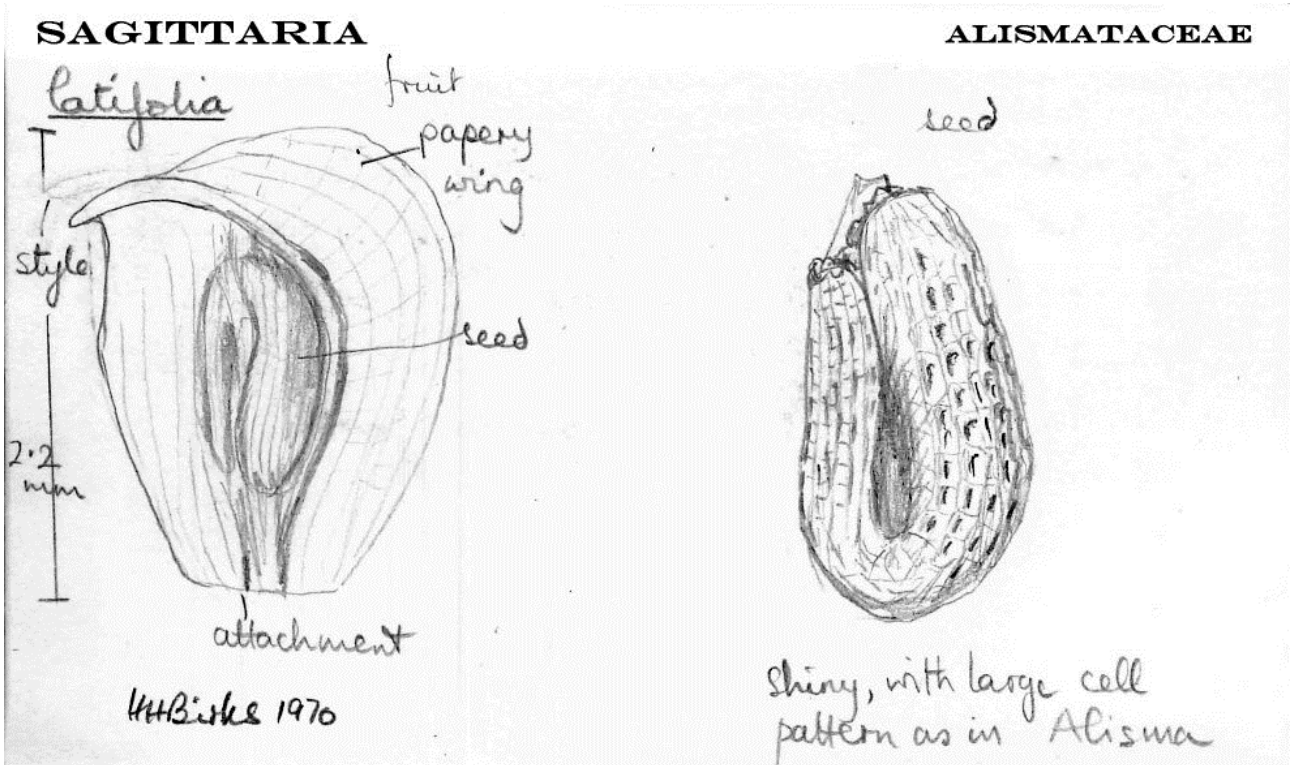 SAGITTARIA
ALISMATACEAE
latifolia
fruit
papery
wing
style
seed
2.2
mm
attachment
HHBirks 1970
seed
shiny, with large cell
pattern as in Alisma